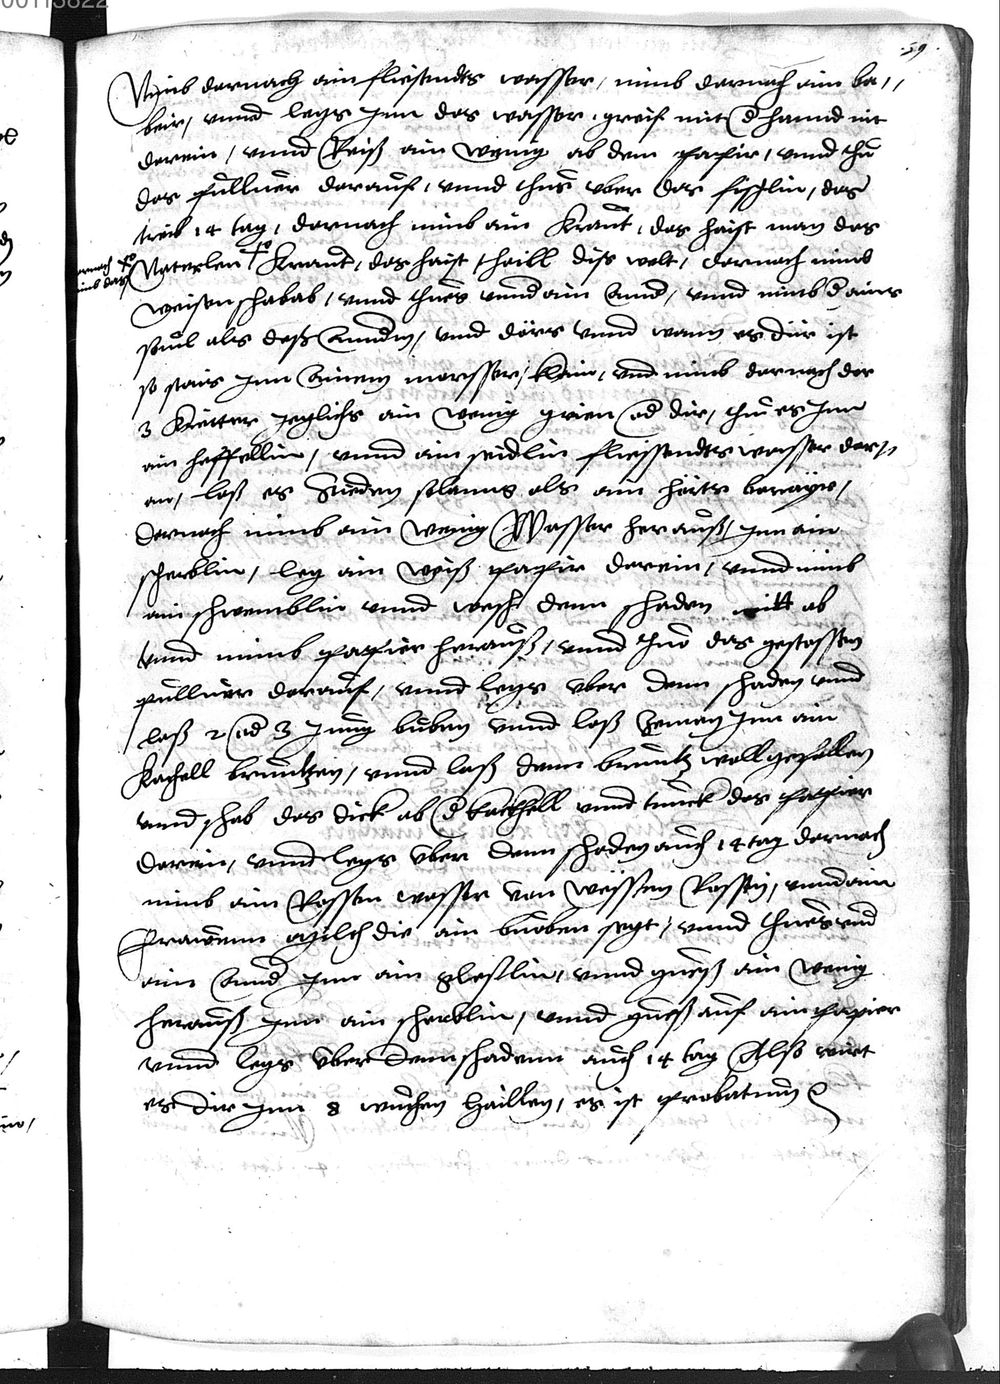 59
Nimb darnach ain fliesendts wasser, nimb darnach ain ba,,
beir, vnnd legs Jnn das wasser, greif mit d hannd nit
darein, vnnd Reiß ain wenig ab dem papir, vnnd thu
das pullver darauf, vnnd thus vber das fistlin, das
treib 14 tag, darnach nimb ain Kraut, das haist man das
Naterlen Kraut, das haist thaill diss welt, darnach nimb
darnach
nimb das
weisen schabab, vnnd thues vnnd ain annd, vnnd nimb d ains
souil als deß anndn, vnd dörs vnnd wann es dür ist
so stois Jnn ainem morsser, klain, vnd nimb darnach der
3 Kreitter Jeglichs ain wenig grien od dür, thu es Jnn
ain heffellin, vnnd ain seidlin fliessendts wasser dar
an, laß es Sieden solanng als ain herts
darnach nimb ain wenig Wasser herauß, Jnn ain
scherblin, leg ain weiß papir darein, vnnd nimb
ain schwemblin vnnd wesch denn schaden mitt ab
vnnd nimb papier herauß, vnnd thuo das gestossen
pulluer darauf, vnnd legs vber denn schaden vnnd
laß 2 od 3 Jung buben vnnd laß Jnn ain
Kachell bruntzen, vnnd laß denn bruntz woll gefallen
vnnd schab das dick ab d kachell vnnd tunck das papier
darein, vnnd legs vber denn schaden auch 14 tag darnach
nimb ain Rossen wasser von weissen Rossen, vnnd ain
frawenn milch die ain buoben segt, vnnd thues vnd
ain annd Jnn ain gleslin, vnnd gueß ain wenig
herauß Jnn ain scherblin, vnnd gueß auf ain papier
vnnd legs vber denn schadenn auch 14 tag Also wirt
es dir Jnn 8 wuchen haillen, es ist probatum